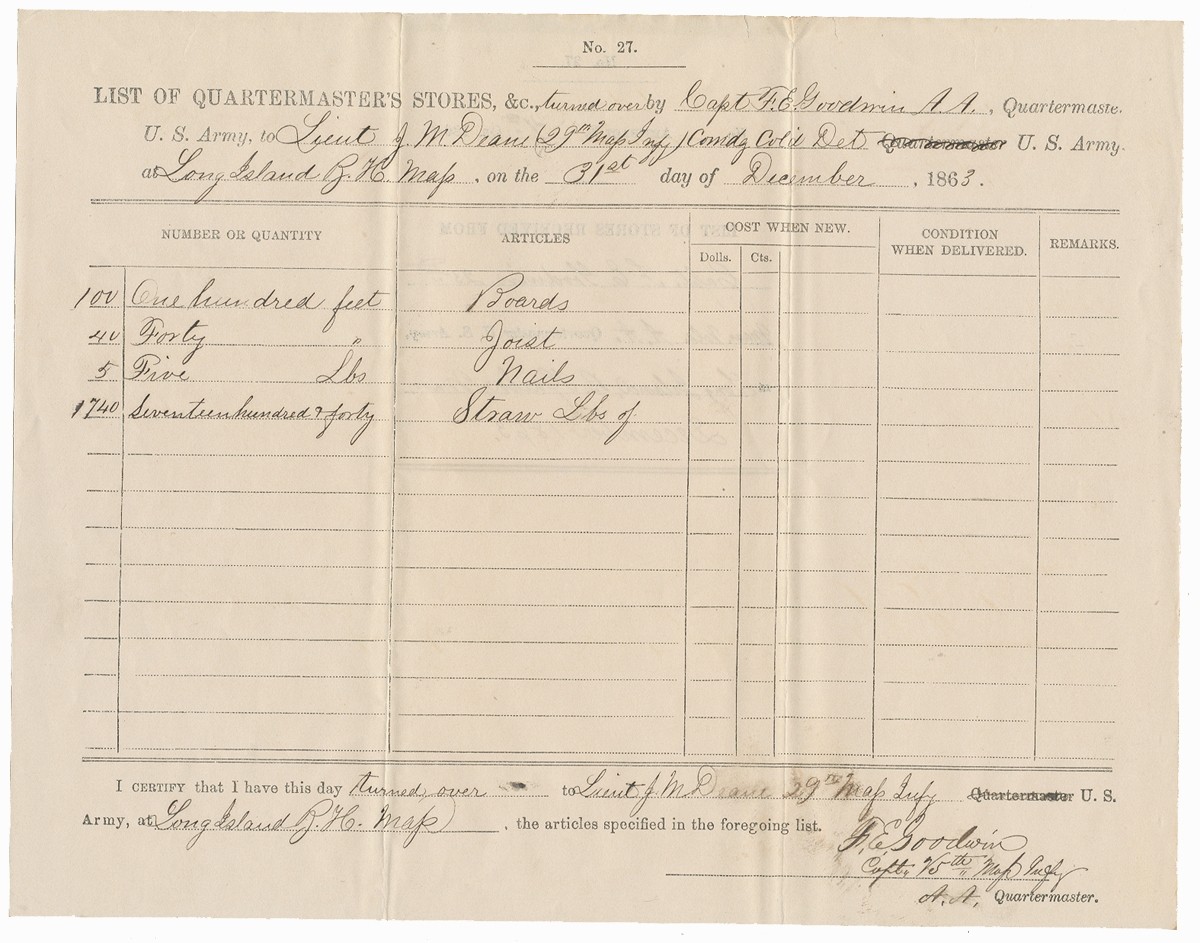 No. 27.
LIST OF QUARTERMASTER'S STORES, &c., turned over by Capt F. E. Goodwin A. A., Quartermaste.
U. S. Army, to Lieut J. M. Deane (29th Mass Infy) Comdg Col'd Det Quartermaster U. S. Army.
at Long Island B. H. Mass, on the 31st day of December, 1863.
NUMBER OR QUANTITY ARTICLES COST WHEN NEW. CONDITION WHEN DELIVERED. REMARKS.
Dolls. Cts.
100 One hundred feet Boards
40 Forty " Joist
5 Five Lbs Nails
1740 Seventeen hundred & forty Straw Lbs of
I CERTIFY that I have this day turned over to Lieut J M Deane 29th Mass Infy Quartermaster U. S.
Army, at Long Island B. H. Mass, the articles specified in the foregoing list.
F. E. Goodwin
Capt, Mass Infy
A. A. Quartermaster.